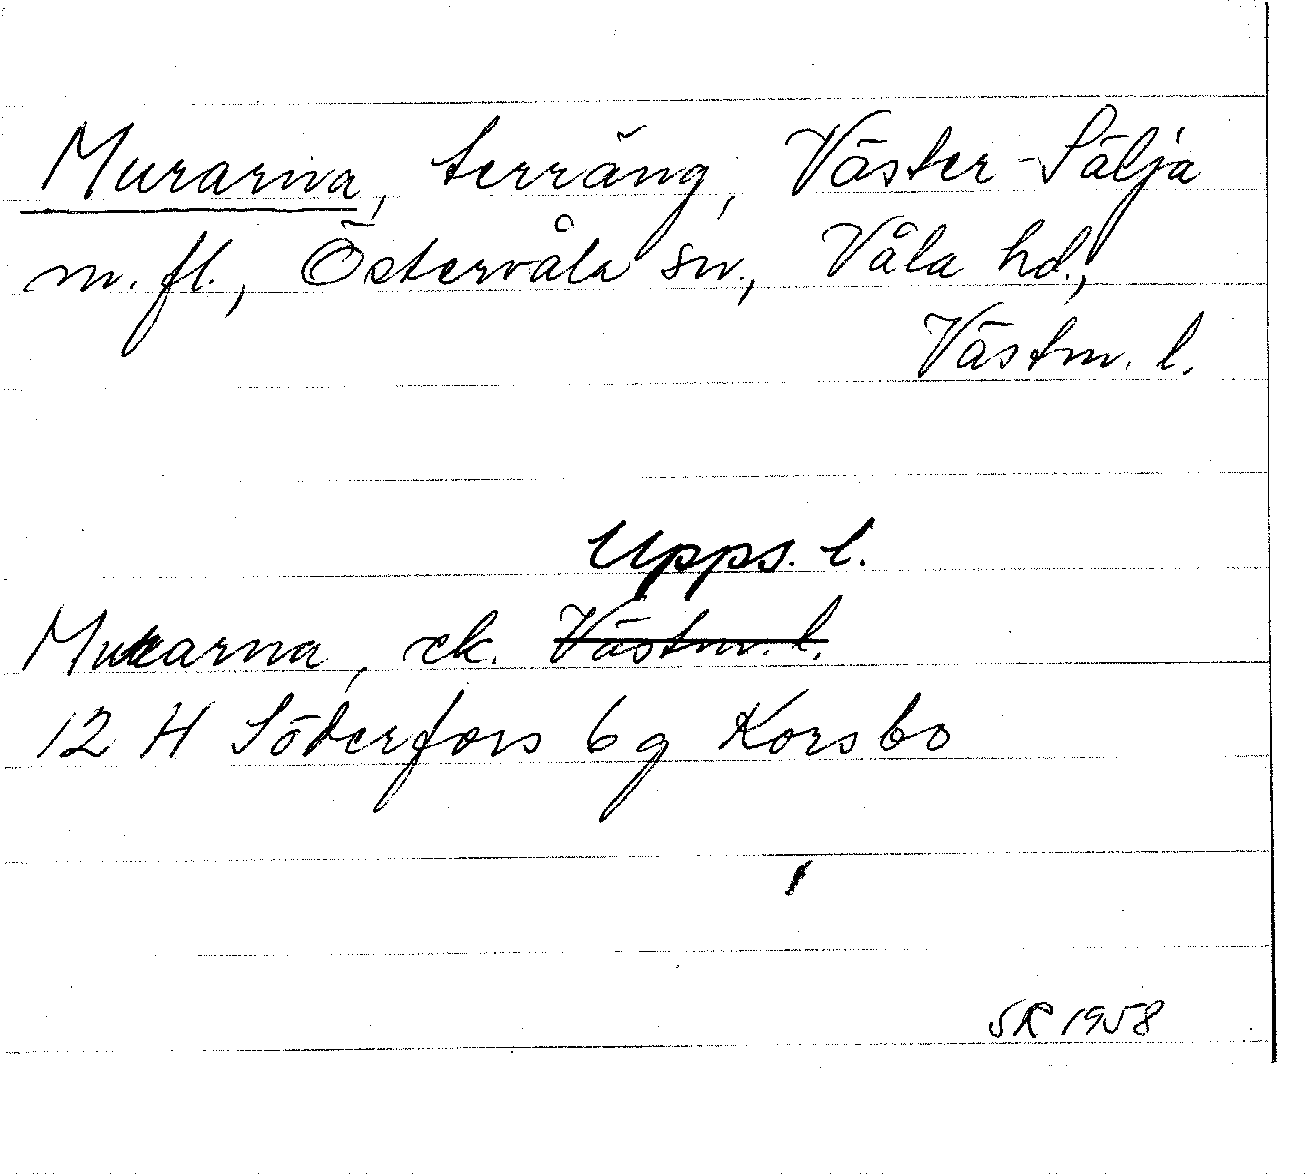 Murarna, terräng, Väster-Sälja
m. fl., Östervåla sn., Våla hd.,
Västm. l.
Upps. l.
Murarna, ek. Västm. l.
12 H Söderfors 6g Korsbo
SR 1958